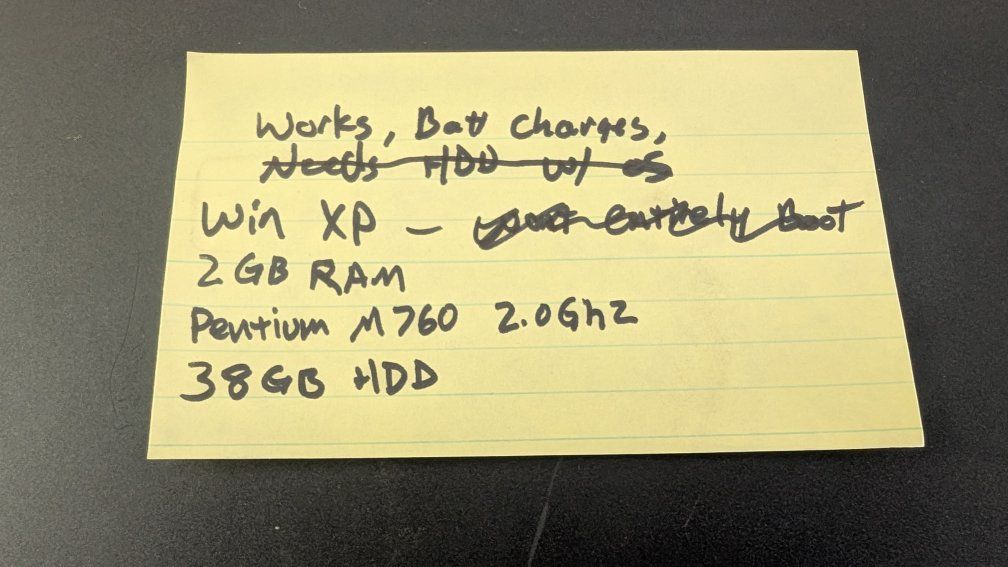 Works, Batt charges,
Needs HDD w/ OS
Win XP - entirely Boot
2 GB RAM
Pentium M 760 2.0Ghz
38 GB HDD